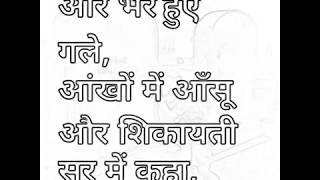 और भरे हुए
गले,
आंखों में आँसू
और शिकायती
सुर में कहा,